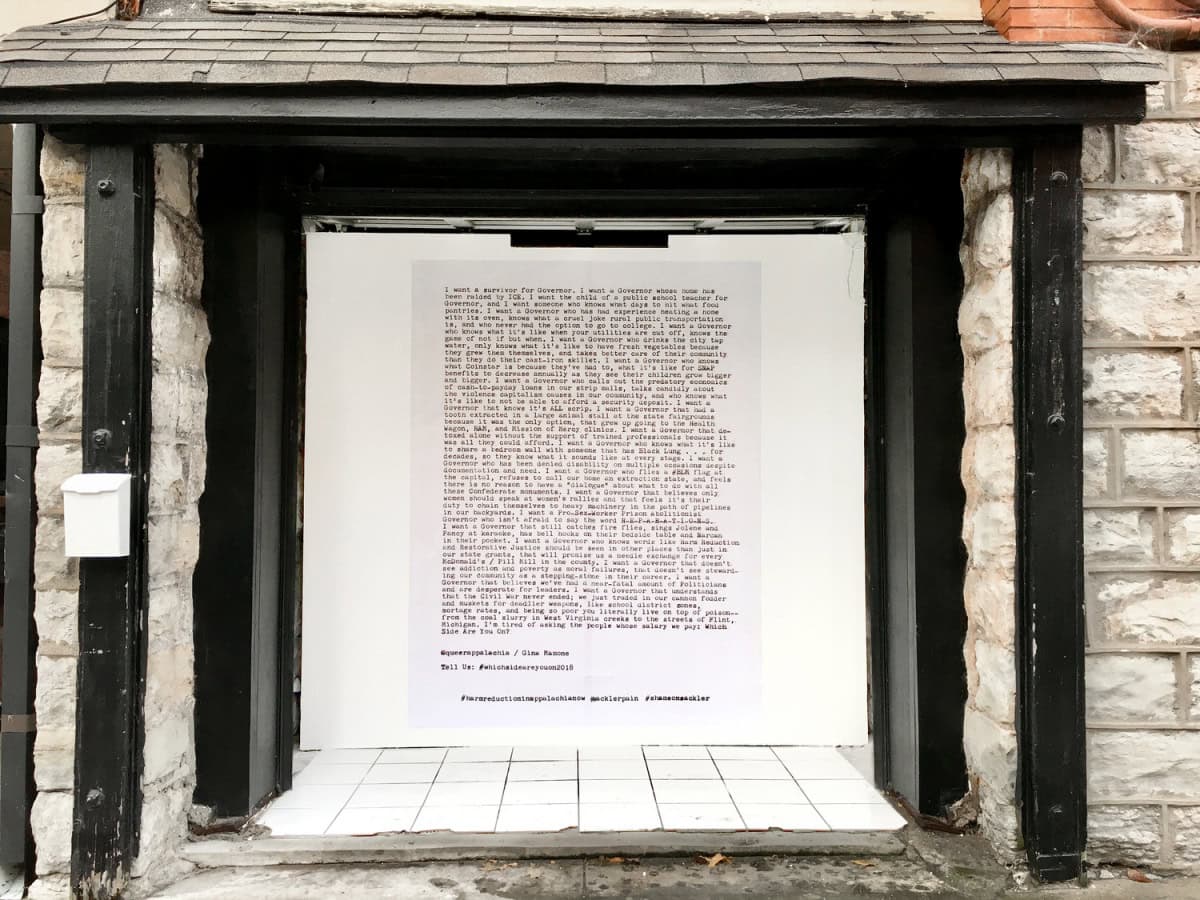 I want a survivor for Governor. I want a Governor whose home has
been raided by ICE. I want the child of a public school teacher for
Governor, and I want someone who knows what days to hit what food
pantries. I want a Governor who has had experience heating a home
with its oven, knows what a cruel joke rural public transportation
is, and who never had the option to go to college. I want a Governor
who knows what it's like when your utilities are cut off, knows the
game of not if but when. I want a Governor who drinks the city tap
water, only knows what it's like to have fresh vegetables because
they grew them themselves, and takes better care of their community
than they do their cast-iron skillet. I want a Governor who knows
what Coinstar is because they've had to, what it's like for SNAP
benefits to decrease annually as they see their children grow bigger
and bigger. I want a Governor who calls out the predatory economics
of cash-to-payday loans in our strip malls, talks candidly about
the violence capitalism causes in our community, and who knows what
it's like to not be able to afford a security deposit. I want a
Governor that knows it's ALL scrip. I want a Governor that had a
tooth extracted in a large animal stall at the state fairgrounds
because it was the only option, that grew up going to the Health
Wagon, RAM, and Mission of Mercy clinics. I want a Governor that de-
toxed alone without the support of trained professionals because it
was all they could afford. I want a Governor who knows what it's like
to share a bedroom wall with someone that has Black Lung . . . for
decades, so they know what it sounds like at every stage. I want a
Governor who has been denied disability on multiple occasions despite
documentation and need. I want a Governor who flies a #BLM flag at
the capital, refuses to call our home an extraction state, and feels
there is no reason to have a "dialogue" about what to do with all
these Confederate monuments. I want a Governor that believes only
women should speak at women's rallies and that feels it's their
duty to chain themselves to heavy machinery in the path of pipelines
in our backyards. I want a Pro-Sex-Worker Prison Abolitionist
Governor who isn't afraid to say the word R-E-P-A-R-A-T-I-O-N-S.
I want a Governor that still catches fire flies, sings Jolene and
Fancy at karaoke, has bell hooks on their bedside table and Narcan
in their pocket. I want a Governor who knows words like Harm Reduction
and Restorative Justice should be seen in other places than just in
our state grants, that will promise us a needle exchange for every
McDonald's / Pill Mill in the county. I want a Governor that doesn't
see addiction and poverty as moral failures, that doesn't see steward-
ing our community as a stepping-stone in their career. I want a
Governor that believes we've had a near-fatal amount of Politicians
and are desperate for leaders. I want a Governor that understands
that the Civil War never ended; we just traded in our cannon fodder
and muskets for deadlier weapons, like school district zones,
mortage rates, and being so poor you literally live on top of poison--
from the coal slurry in West Virginia creeks to the streets of Flint,
Michigan. I'm tired of asking the people whose salary we pay: Which
Side Are You On?
@queerappalachia / Gina Mamone
Tell Us: #whichsideareyouon2018
#harmreductioninappalachianow @sacklerpain #shameonsackler